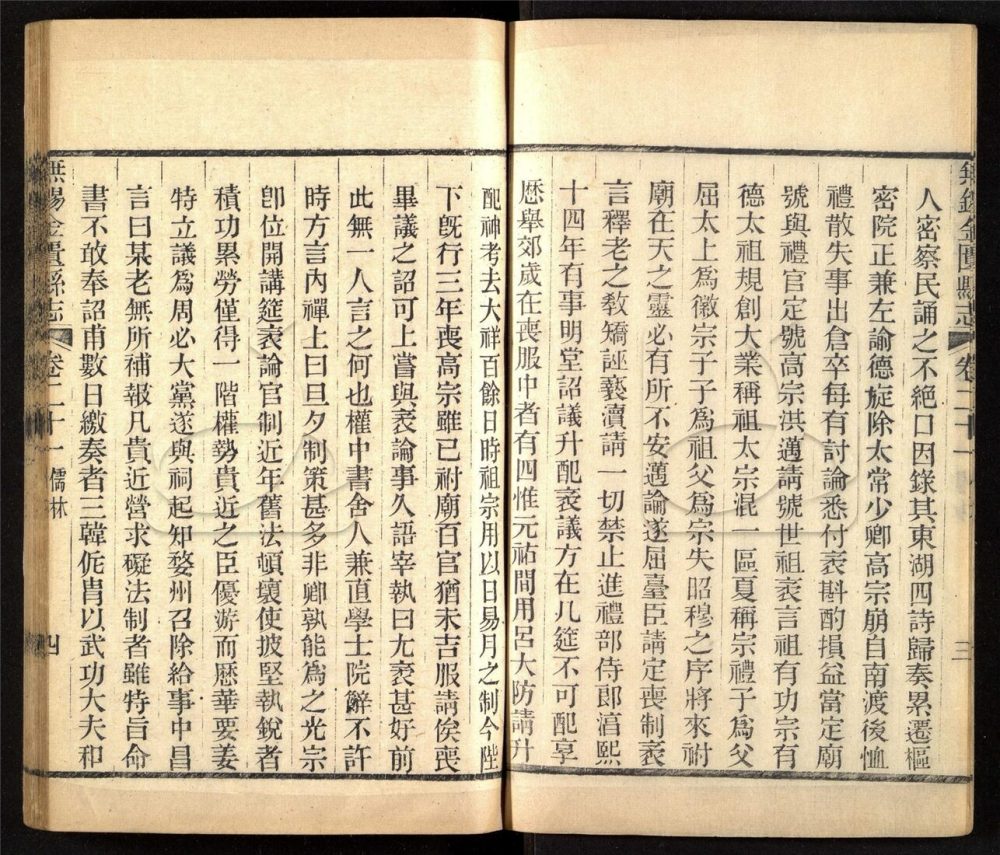 無錫金匱縣志 卷二十一 三
人密察民誦之不絕口因錄其東湖四詩歸奏累遷樞
密院正兼左諭德旋除太常少卿高宗崩自南渡後恤
禮散失事出倉卒每有討論悉付袤斟酌損益當定廟
號與禮官定號高宗洪邁請號世祖袤言祖有功宗有
德太祖規創大業稱祖太宗混一區夏稱宗禮子爲父
屈太上爲徽宗子子爲祖父爲宗失昭穆之序將來祔
廟在天之靈必有所不安邁論遂屈臺臣請定喪制袤
言釋老之敎矯誣褻瀆請一切禁止進禮部侍郎淳熙
十四年有事明堂詔議升配袤議方在几筵不可配享
歷舉郊歲在喪服中者有四惟元祐間用呂大防請升
配神考去大祥百餘日時祖宗用以日易月之制今陛
下旣行三年喪高宗雖已祔廟百官猶未吉服請俟喪
畢議之詔可上嘗與袤論事久語宰執曰尤袤甚好前
此無一人言之何也權中書舍人兼直學士院辭不許
時方言內禪上曰旦夕制策甚多非卿孰能爲之光宗
卽位開講筵袤論官制近年舊法頓壞使披堅執銳者
積功累勞僅得一階權勢貴近之臣優游而歷華要姜
特立議爲周必大黨遂與祠起知婺州召除給事中昌
言曰某老無所補報凡貴近營求礙法制者雖特旨命
書不敢奉詔甫數日繳奏者三韓侂冑以武功大夫和
無錫金匱縣志 卷二十一 儒林 四